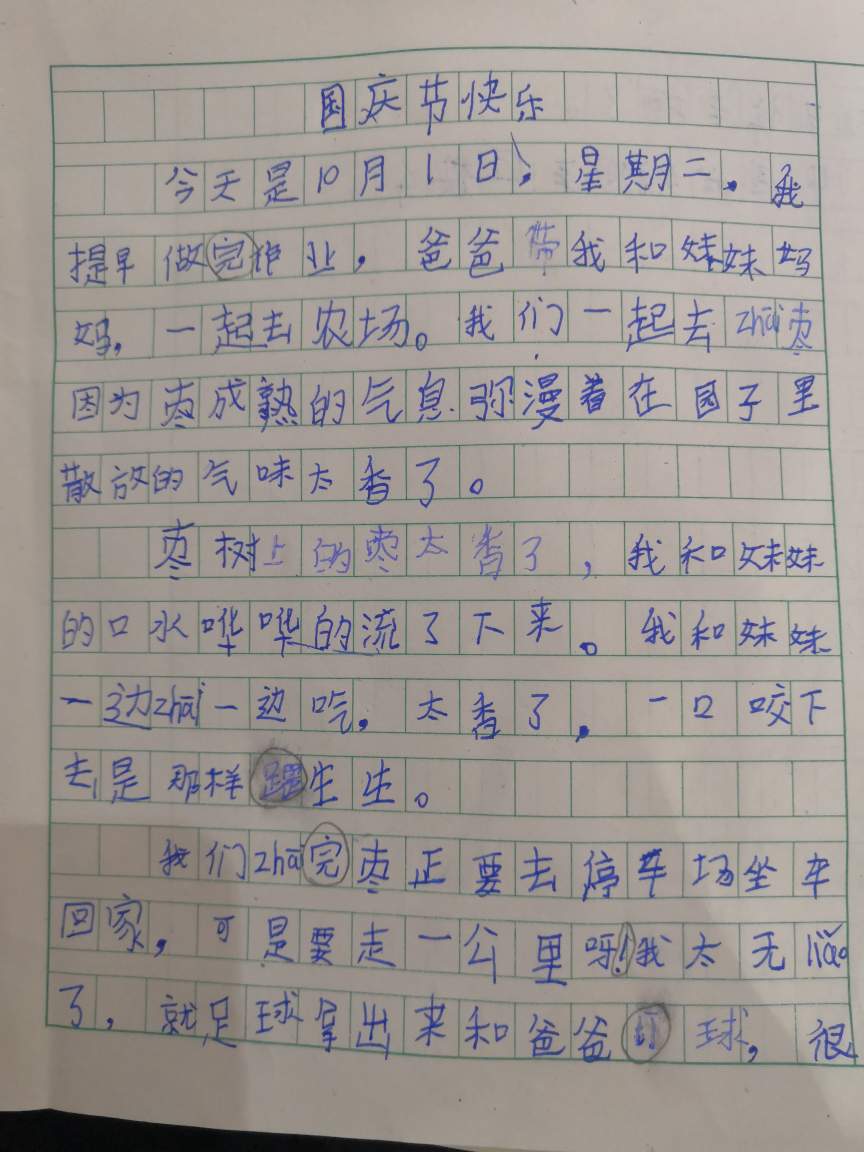 国庆节快乐
今天是10月1日，星期二。我
提早做完作业，爸爸带我和妹妹妈
妈，一起去农场。我们一起去zhāi枣
因为枣成熟的气息弥漫着在园子里
散放的气味太香了。
枣树上的枣太香了，我和妹妹
的口水哗哗的流了下来。我和妹妹
一边zhāi一边吃，太香了，一口咬下
去是那样生生。
我们zhāi完枣正要去停车场坐车
回家，可是要走一公里呀！我太无liáo
了，就足球拿出来和爸爸打球，很